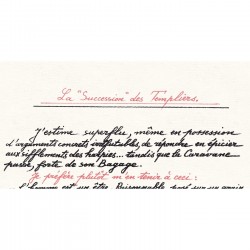 La "Succession" des Templiers.
J'estime superflu, même en possession
d'arguments concrets irréfutables, de répondre en épicier
aux sifflements des harpies... tandis que la Caravane
passe, forte de son Bagage.
Je préfère plutôt m'en tenir à ceci :
l'homme est un être Raisonnable posé sur un